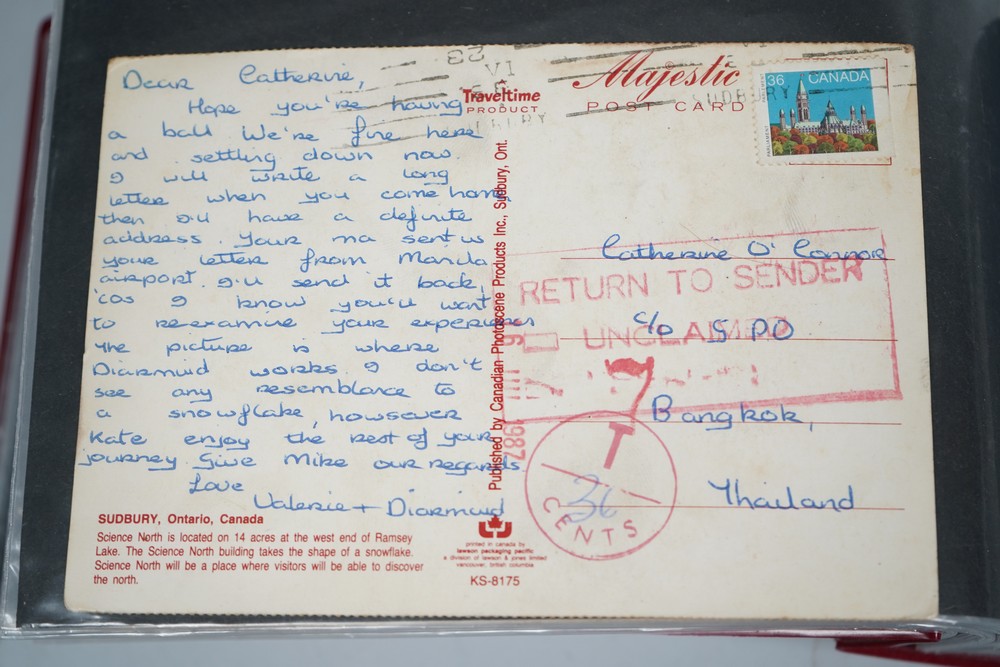 Dear Catherine,
Hope you're having
a ball. We're fine here
and settling down now.
I will write a long
letter when you come home,
then I'll have a definite
address. Your ma sent us
your letter from Manila
airport. I'll send it back,
'cos I know you'll want
to re-examine your experiences
The picture is where
Diarmuid works. I don't
see any resemblance to
a snowflake, howsever
Kate enjoy the rest of your
journey. Give Mike our regards.
Love
Valerie + Diarmuid
SUDBURY, Ontario, Canada
Science North is located on 14 acres at the west end of Ramsey
Lake. The Science North building takes the shape of a snowflake.
Science North will be a place where visitors will be able to discover
the north.
Traveltime
PRODUCT
Published by Canadian Photoscene Products Inc., Sudbury, Ont.
printed in canada by
lawson packaging pacific
a division of lawson & jones limited
vancouver, british columbia
KS-8175
Majestic
POST CARD
36 CANADA
PARLIAMENT
Catherine O'Connor
RETURN TO SENDER
c/o GPO
UNCLAIMED
Bangkok,
Thailand
1987
T
36
CENTS
23
VI